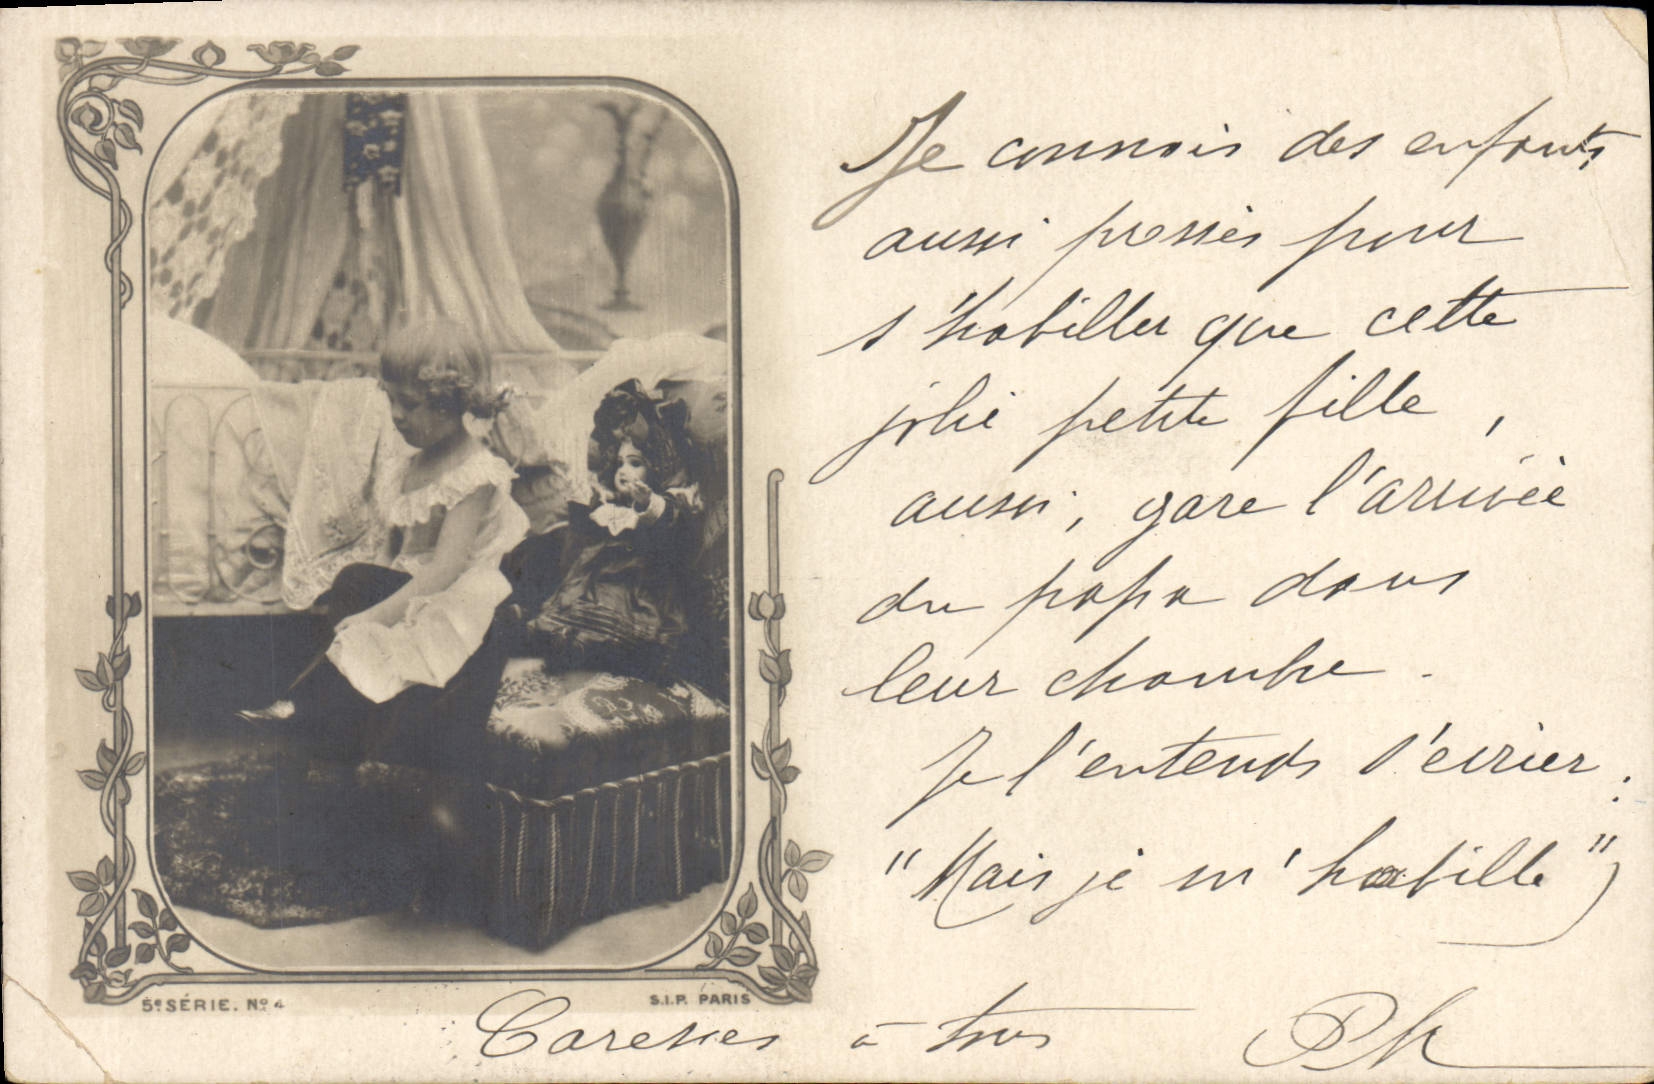 Je connais des enfants
aussi pressés pour
s'habiller que cette
jolie petite fille,
aussi, gare l'arrivée
du papa dans
leur chambre.
Je l'entends s'écrier :
"Mais je m'habille"
5e SÉRIE. No 4
S.I.P. PARIS
Caresses à tous